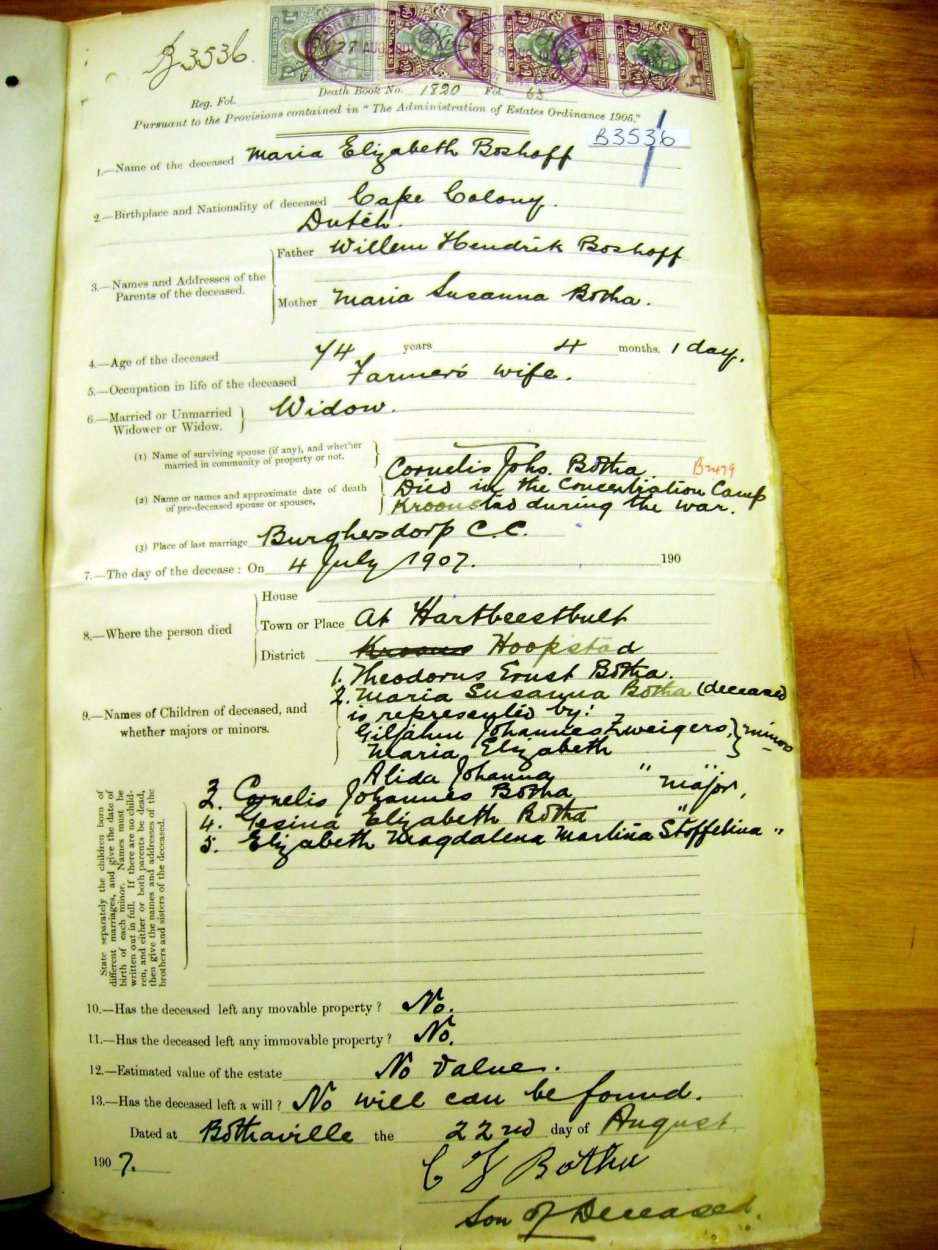 B3536.
27 AUG 190
Reg. Fol. Death Book No. 1820 Fol. 63
Pursuant to the Provisions contained in "The Administration of Estates Ordinance 1905."
B3536
1.—Name of the deceased Maria Elizabeth Boshoff
2.—Birthplace and Nationality of deceased Cape Colony.
Dutch.
Father Willem Hendrik Boshoff
3.—Names and Addresses of the
Parents of the deceased.
Mother Maria Susanna Botha.
4.—Age of the deceased 74 years 4 months. 1 day.
5.—Occupation in life of the deceased Farmer's wife.
6.—Married or Unmarried
Widower or Widow. Widow.
(1) Name of surviving spouse (if any), and whether
married in community of property or not.
Cornelis Johs. Botha B2479
(2) Name or names and approximate date of death
of pre-deceased spouse or spouses,
Died in the Concentration Camp
Kroonstad during the war.
(3) Place of last marriage Burghersdorp C.C.
7.—The day of the decease: On 4 July 1907. 190
House
8.—Where the person died
Town or Place At Hartbeestbult
District Hoopstad
1. Theodorus Ernst Botha.
2. Maria Susanna Botha (deceased
9.—Names of Children of deceased, and
whether majors or minors.
is represented by:
Johannes Zweigers, minors
Maria Elizabeth
Alida Johanna "
3. Cornelis Johannes Botha major,
4. Gesina Elizabeth Botha "
5. Elizabeth Magdalena Martina Stoffelina "
State separately the children born of
different marriages, and give the date of
birth of each minor. Names must be
written out in full. If there are no child-
ren, and either or both parents be dead,
then give the names and addresses of the
brothers and sisters of the deceased.
10.—Has the deceased left any movable property? No.
11.—Has the deceased left any immovable property? No.
12.—Estimated value of the estate No value.
13.—Has the deceased left a will? No will can be found.
Dated at Bothaville the 22nd day of August
1907.
C J Botha
Son of Deceased.